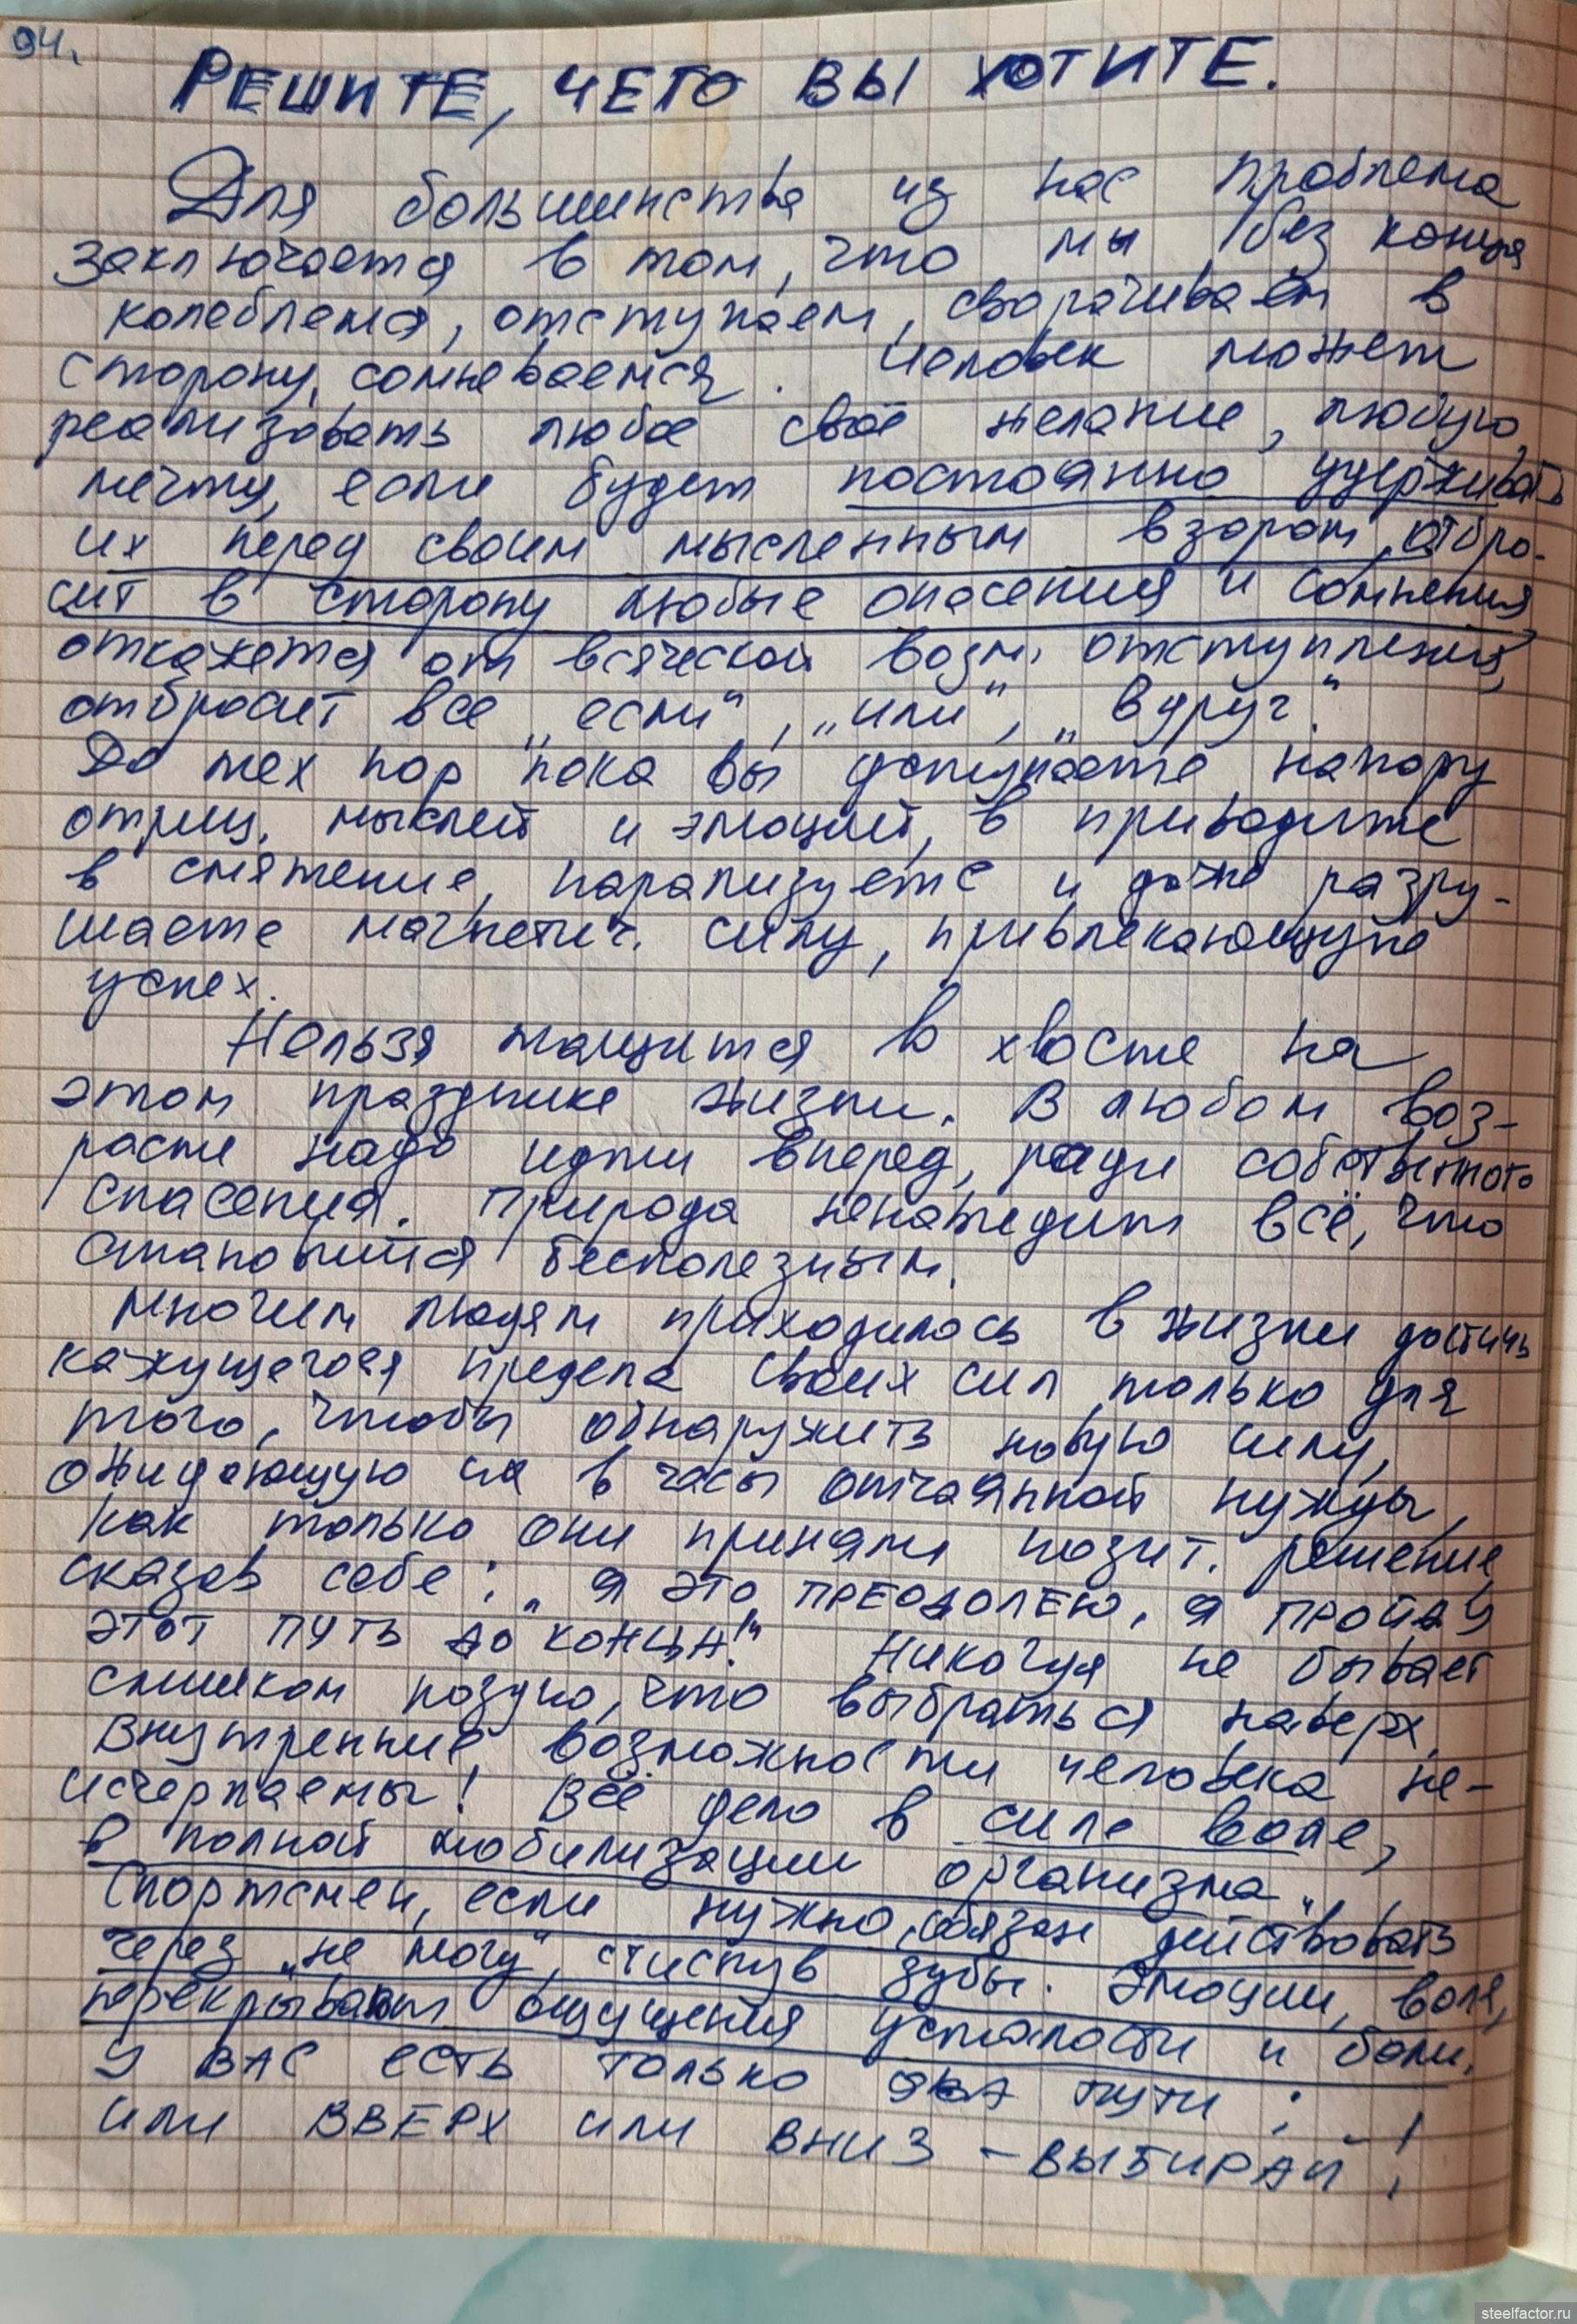 94.
РЕШИТЕ, ЧЕГО ВЫ ХОТИТЕ.
Для большинства из нас проблема
заключается в том, что мы без конца
колеблемся, отступаем, сворачиваем в
сторону, сомневаемся. Человек может
реализовать любое своё желание, любую
мечту, если будет постоянно удерживать
их перед своим мысленным взором, отбро-
сит в сторону любые опасения и сомнения,
откажется от всяческой возм. отступления,
отбросит все „если“, „или“, „вдруг“.
До тех пор пока вы уступаете напору
отриц. мыслей и эмоций, в приводите
в смятение, парализуете и даже разру-
шаете магнетич. силу, привлекающую
успех.
Нельзя тащится в хвосте на
этом празднике жизни. В любом воз-
расте надо идти вперед, ради собственного
спасения. Природа ненавидит всё, что
становится бесполезным.
Многим людям приходилось в жизни достичь
кажущегося предела своих сил только для
того, чтобы обнаружить новую силу,
ожидающую их в часы отчаянной нужды,
как только они приняли позит. решение,
сказав себе: „Я ЭТО ПРЕОДОЛЕЮ, Я ПРОЙДУ
ЭТОТ ПУТЬ ДО КОНЦА!“ Никогда не бывает
слишком поздно, что выбраться наверх.
Внутренние возможности человека не-
исчерпаемы! Всё дело в силе воле,
в полной мобилизации организма.
Спортсмен, если нужно, обязан действовать
через „не могу“, стиснув зубы. Эмоции, воля,
перекрывают ощущения усталости и боли.
У ВАС ЕСТЬ ТОЛЬКО ДВА ПУТИ:
ИЛИ ВВЕРХ ИЛИ ВНИЗ – ВЫБИРАЙ!
steelfactor.ru